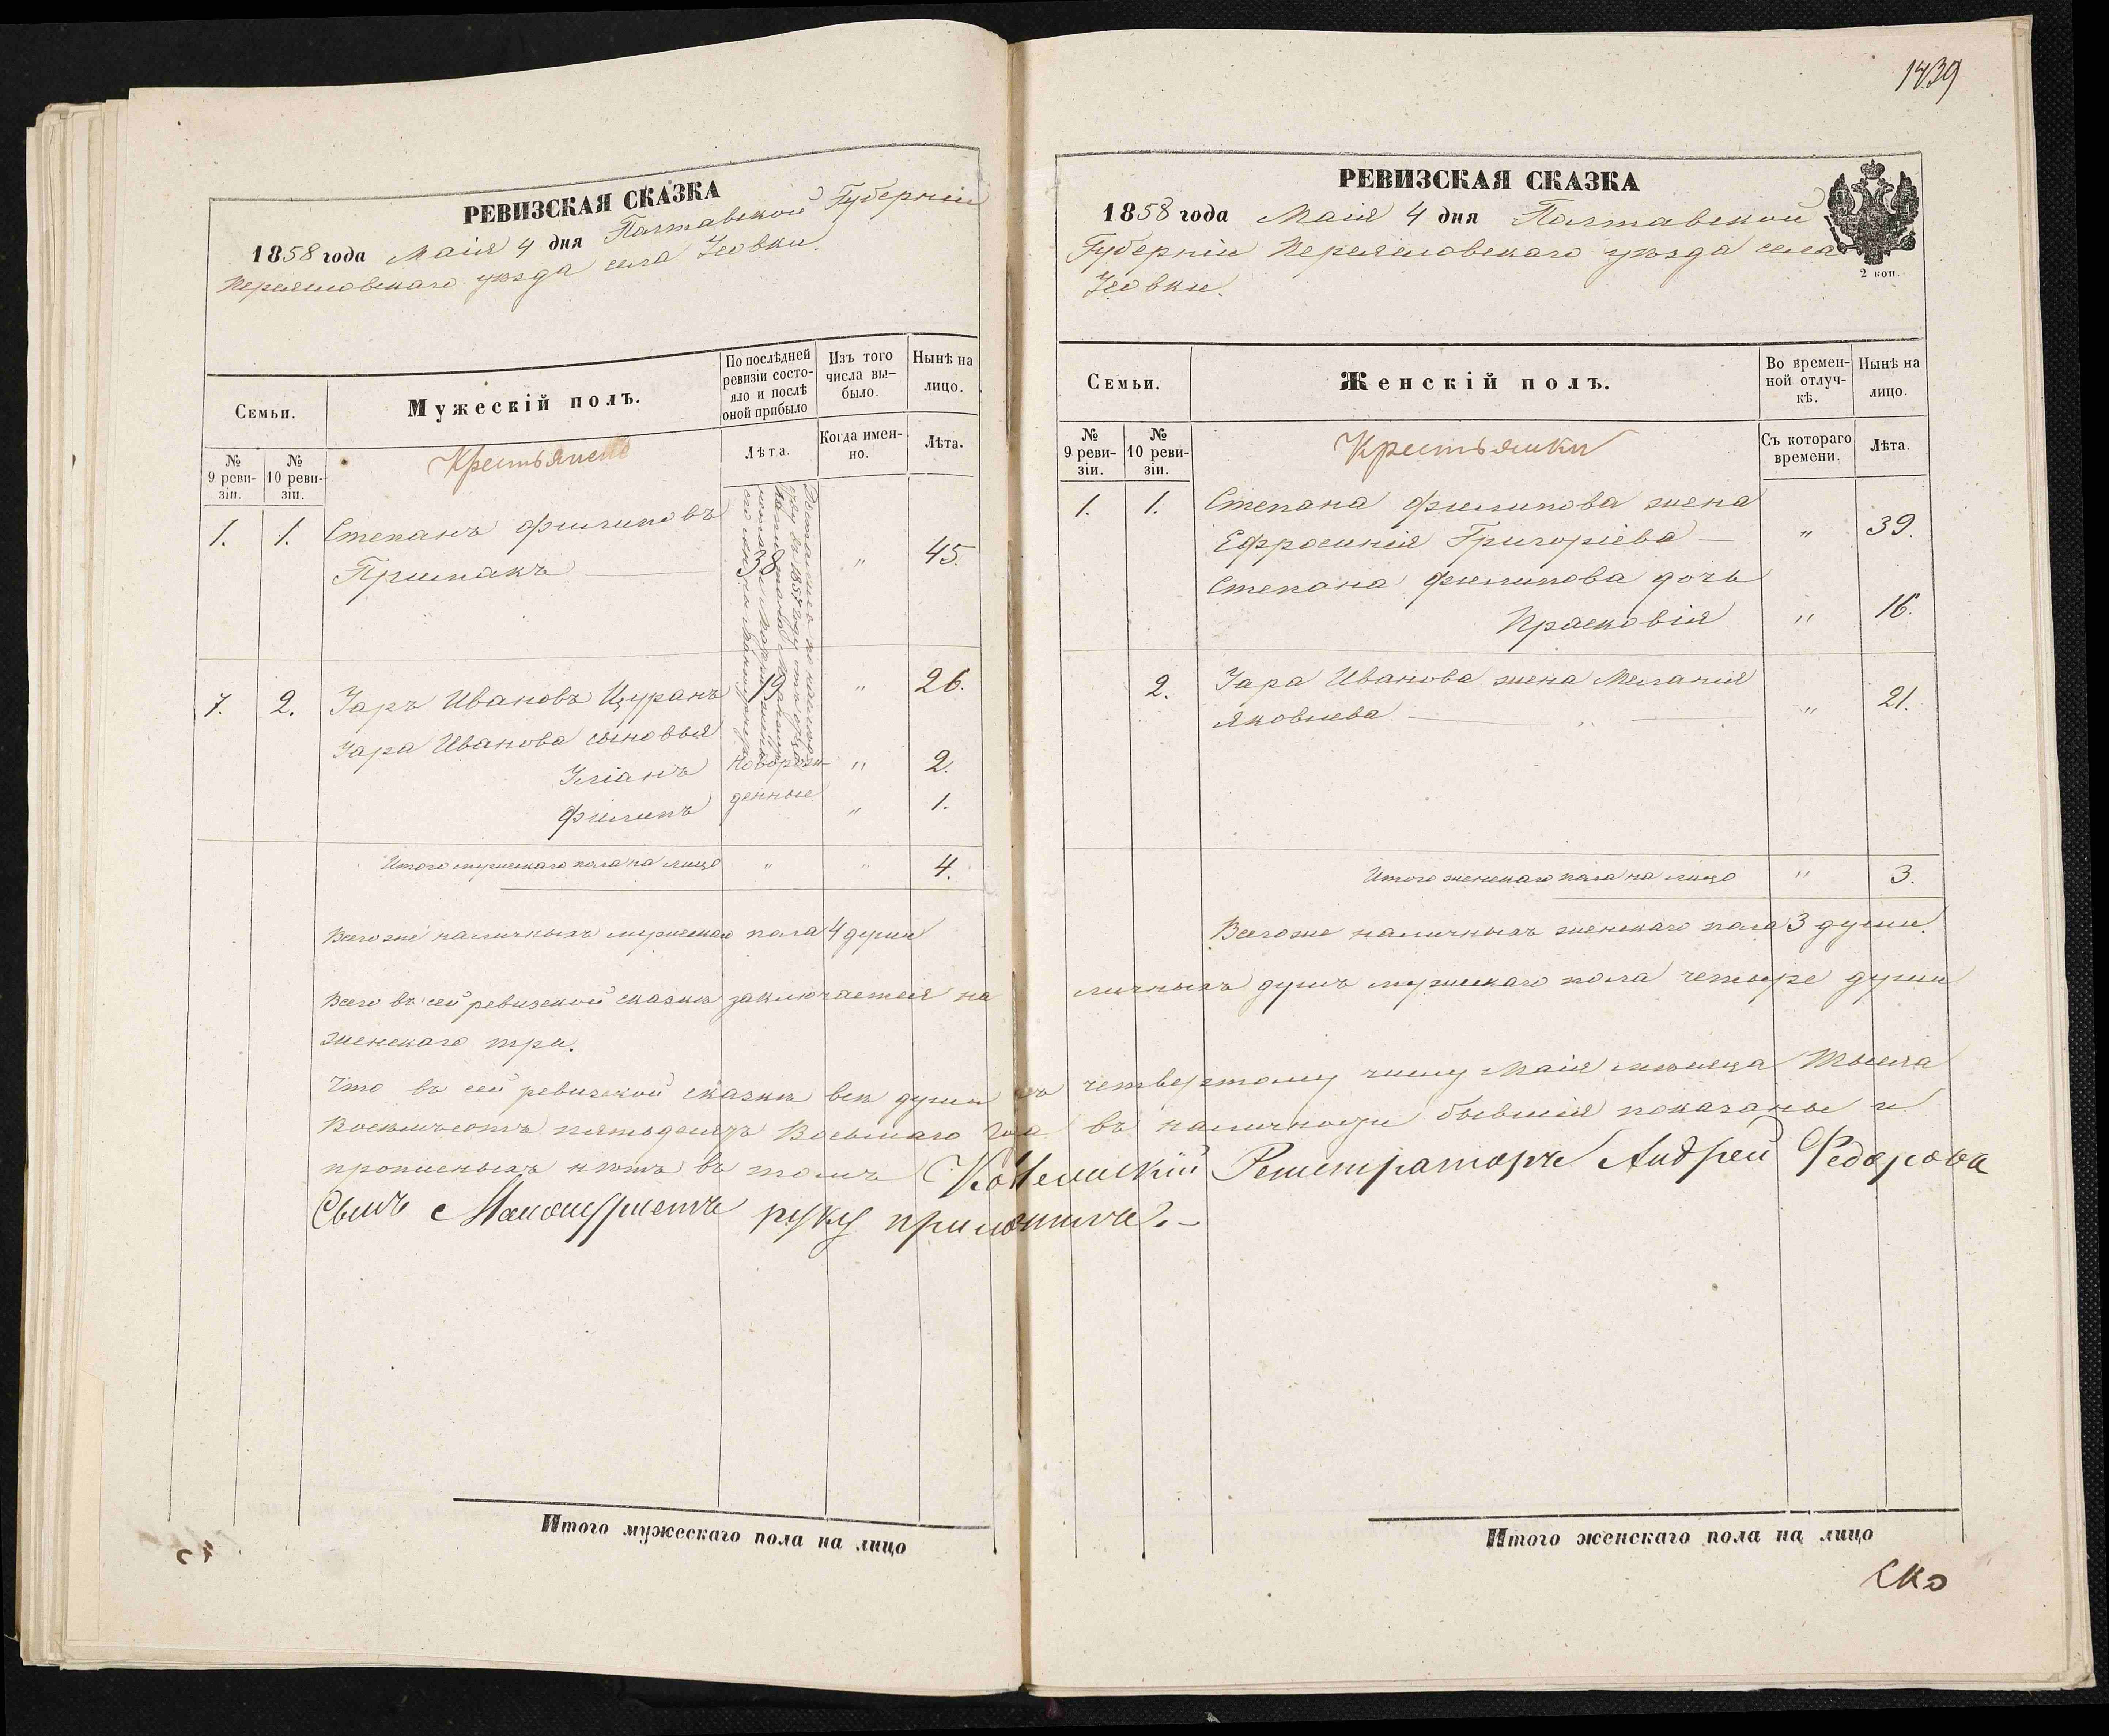 РЕВИЗСКАЯ СКАЗКА
1858 года Маія 4 дня Полтавской Губерніи
Переясловскаго уѣзда села
Семьи.
Мужескій полъ.
По послѣдней ревизіи состояло и послѣ оной прибыло
Изъ того числа выбыло.
Нынѣ на лицо.
№ 9 ревизіи.
№ 10 ревизіи.
Крестьяне
Лѣта.
Когда именно.
Лѣта.
1. 1. Степанъ Филиповъ
Примакъ 38 " 45.
7. 2. Іаръ Ивановъ Цуранъ 19 " 26.
Іара Иванова сыновья
Уліанъ новорож- " 2.
Филипъ денные " 1.
Итого мужескаго пола на лицо " " 4.
Всего же наличныхъ мужескаго пола 4 души
Всего въ сей ревизской сказкѣ заключается на
женскаго три.
Что въ сей ревизской сказкѣ всѣ души къ
Восемьсотъ пятьдесятъ Восьмаго года
прописныхъ нѣтъ въ томъ
Сынъ руку приложилъ.
Итого мужескаго пола на лицо
1439
РЕВИЗСКАЯ СКАЗКА
1858 года Маія 4 дня Полтавской
Губерніи Переясловскаго уѣзда села
2 коп.
Семьи.
Женскій полъ.
Во временной отлучкѣ.
Нынѣ на лицо.
№ 9 ревизіи.
№ 10 ревизіи.
Крестьянки
Съ котораго времени.
Лѣта.
1. 1. Степана Филипова жена
Ефросинія Григоріева " 39.
Степана Филипова дочь
Прасковія " 16.
2. Іара Иванова жена Меланія
Яковлева " 21.
Итого женскаго пола на лицо " 3.
Всего же наличныхъ женскаго пола 3 души.
личныхъ душъ мужескаго пола четыре души
четвертому числу Маія мѣсяца Тысяча
въ наличности бывшія показаны и
Регистраторъ Андрей Федорова
Итого женскаго пола на лицо